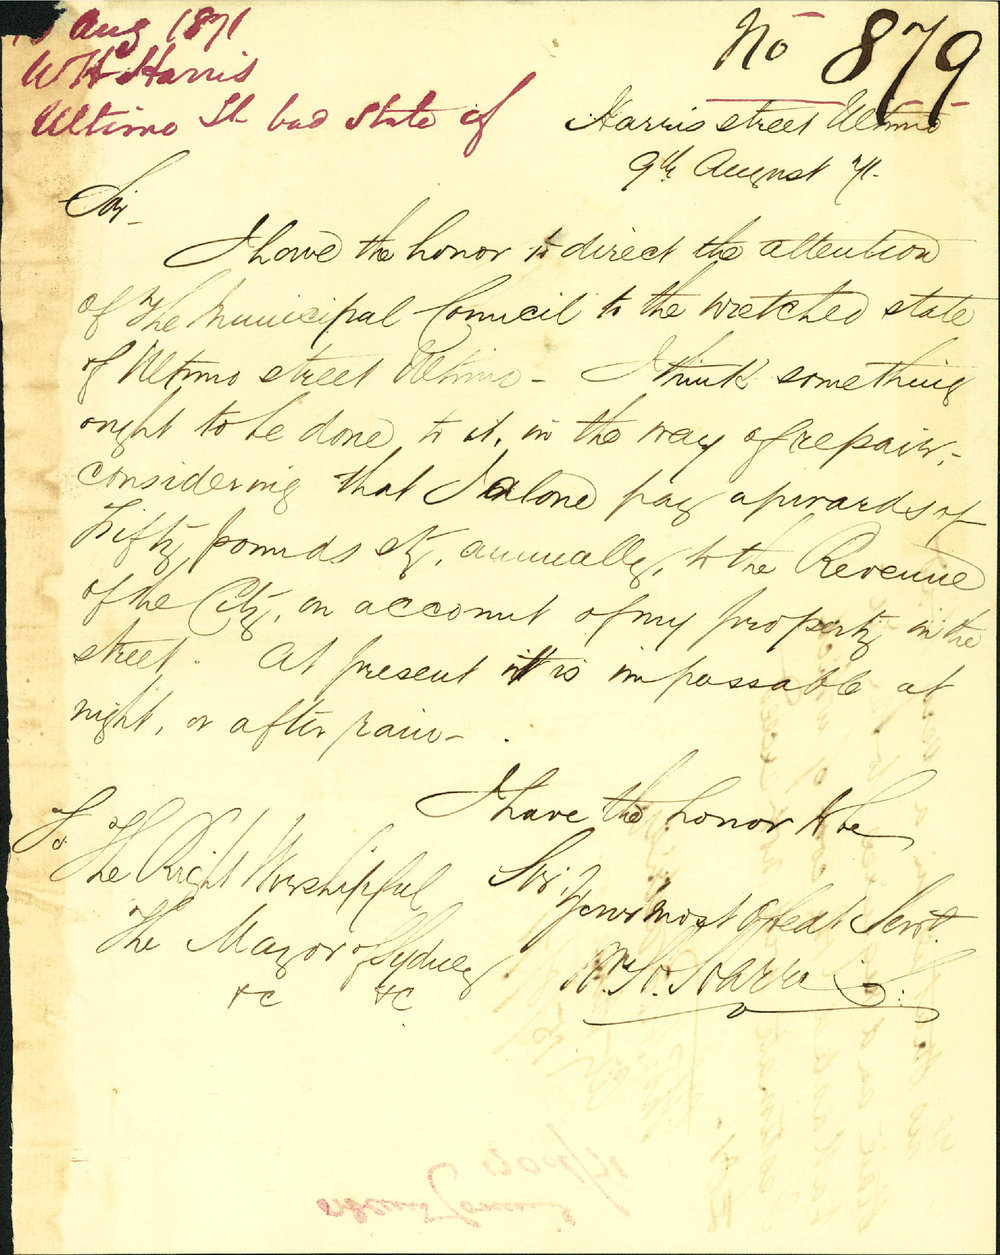 Aug 1871
W H Harris
Ultimo St bad state of
No 879
Harris street Ultimo
9th August 71.
Sir -
I have the honor to direct the attention
of The Municipal Council to the wretched state
of Ultimo street Ultimo - I think something
ought to be done to it, in the way of repair,-
considering that I alone pay upwards of
Fifty pounds stg, annually, to the Revenue
of the City, on account of my property in the
street. At present it is impassable at
night, or after rain -
I have the honor to be
Sir,
Your most Obedt Servt
Wm H. Harris
To
The Right Worshipful
The Mayor of Sydney
&c &c